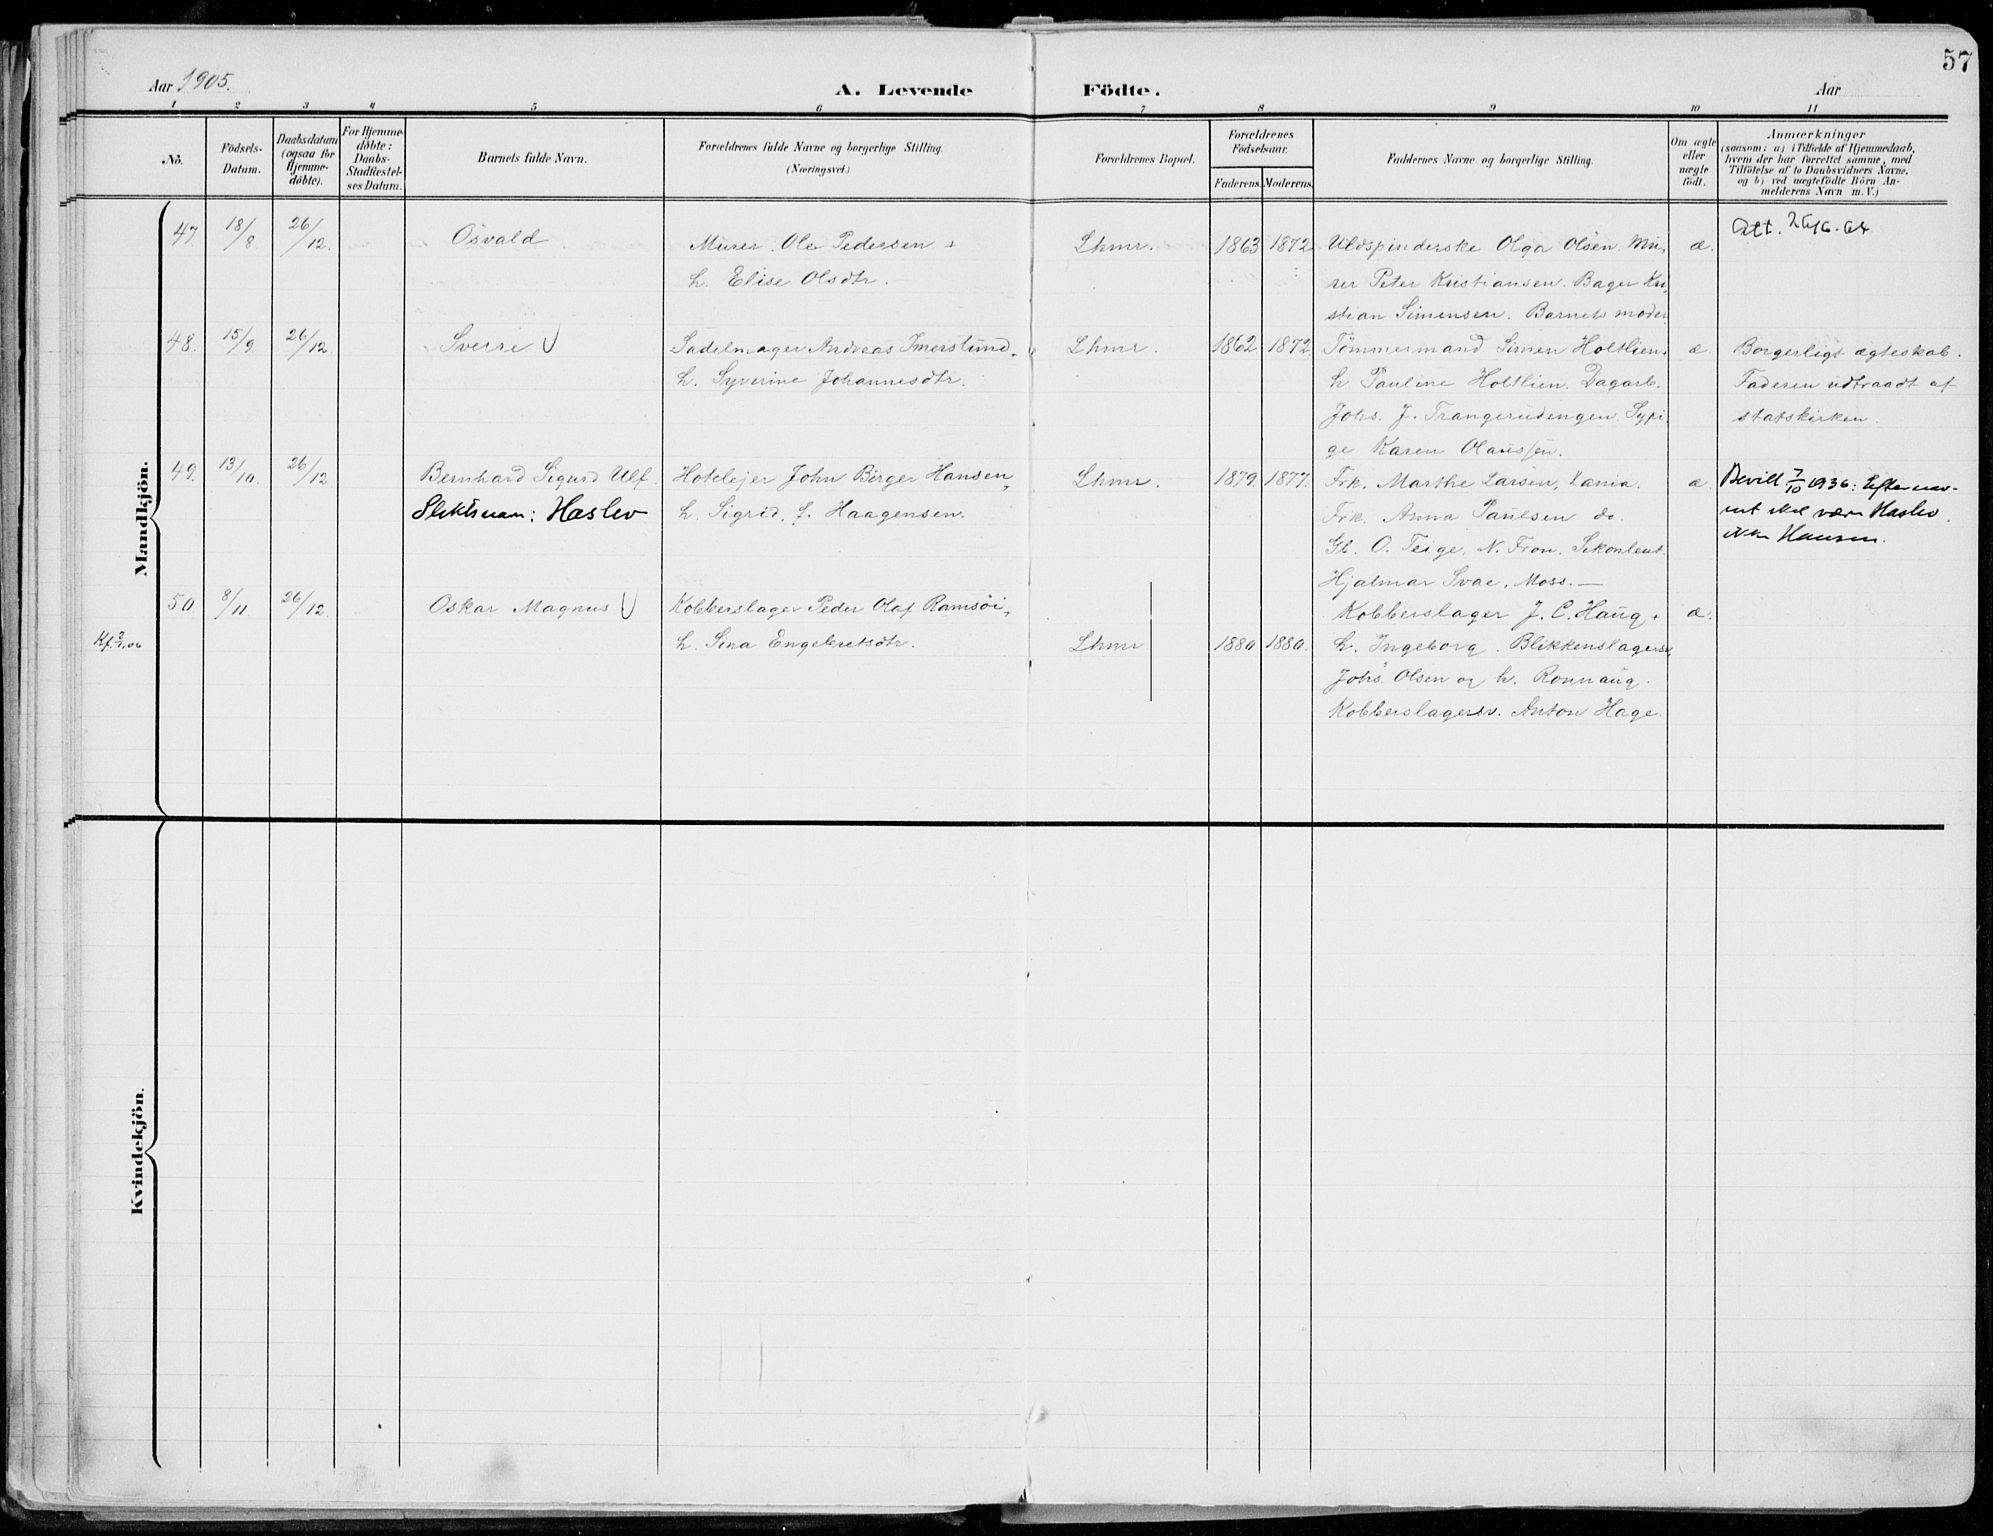 57
Aar 1905.
A. Levende Födte.
Aar
1 2 3 4 5 6 7 8 9 10 11
No.
Födsels-
Datum.
Daabsdatum
(ogsaa for
Hjemme-
döbte).
For Hjemme-
döbte:
Daabs-
Stadfæstel-
ses Datum.
Barnets fulde Navn.
Forældrenes fulde Navne og borgerlige Stilling.
(Næringsvei.)
Forældrenes Bopæl.
Forældrenes
Födselsaar.
Faderens. Moderens.
Faddernes Navne og borgerlige Stilling.
Om ægte
eller
uægte
født.
Anmærkninger
(saasom: a) i Tilfælde af Hjemmedaab,
hvem der har forrettet samme, med
Tilföielse af to Daabsvidners Navne,
og b) ved uægtefödte Börn An-
melderens Navn m. V.)
Mandkjön.
47. 18/8. 26/12. Osvald Murer Ole Pedersen +
h. Elise Olsdtr.
Lhmr. 1863 1872
Uldspinderske Olga Olsen. Mu-
rer Peter Kristiansen. Bager Kri-
stian Simensen. Barnets moder
æ. Att. 26/6-64
48. 15/9. 26/12. Sverre Sadelmager Andreas Imerslund +
h. Syverine Johannesdtr.
Lhmr. 1862 1872
Tömmermand Simen Holtlien +
h. Pauline Holtlien. Dagarb.
Johs. J. Trangerudengen. Sypi-
ge Karen Olaussen.
æ. Borgerligt ægteskab.
Faderen udtraadt af
statskirken.
49. 13/10. 26/12 Bernhard Sigurd Ulf.
Slektsnavn: Haslev
Hotelejer John Birger Hansen +
h. Sigrid, f. Haagensen.
Lhmr. 1879. 1877.
Frk. Marthe Larsen, Lania.
Frk. Anna Paulsen do.
Gb. O. Teige, N. Fron. Sekonlent.
Hjalmar Svae, Moss. —
æ. Bevill 7/10 1936: Efternav-
net skal være Haslev
ikke Hansen.
50. 8/11 26/12. Oskar Magnus Kobberslager Peder Olaf Ramsöi +
h. Sina Engebretsdtr.
Lhmr. 1880 1880.
Kobberslager J. C. Haug +
h. Ingeborg. Blikkenslagersv.
Johs. Olsen og h. Rønnaug.
Kobberslagersv. Anton Hage.
æ.
Kvindekjön.